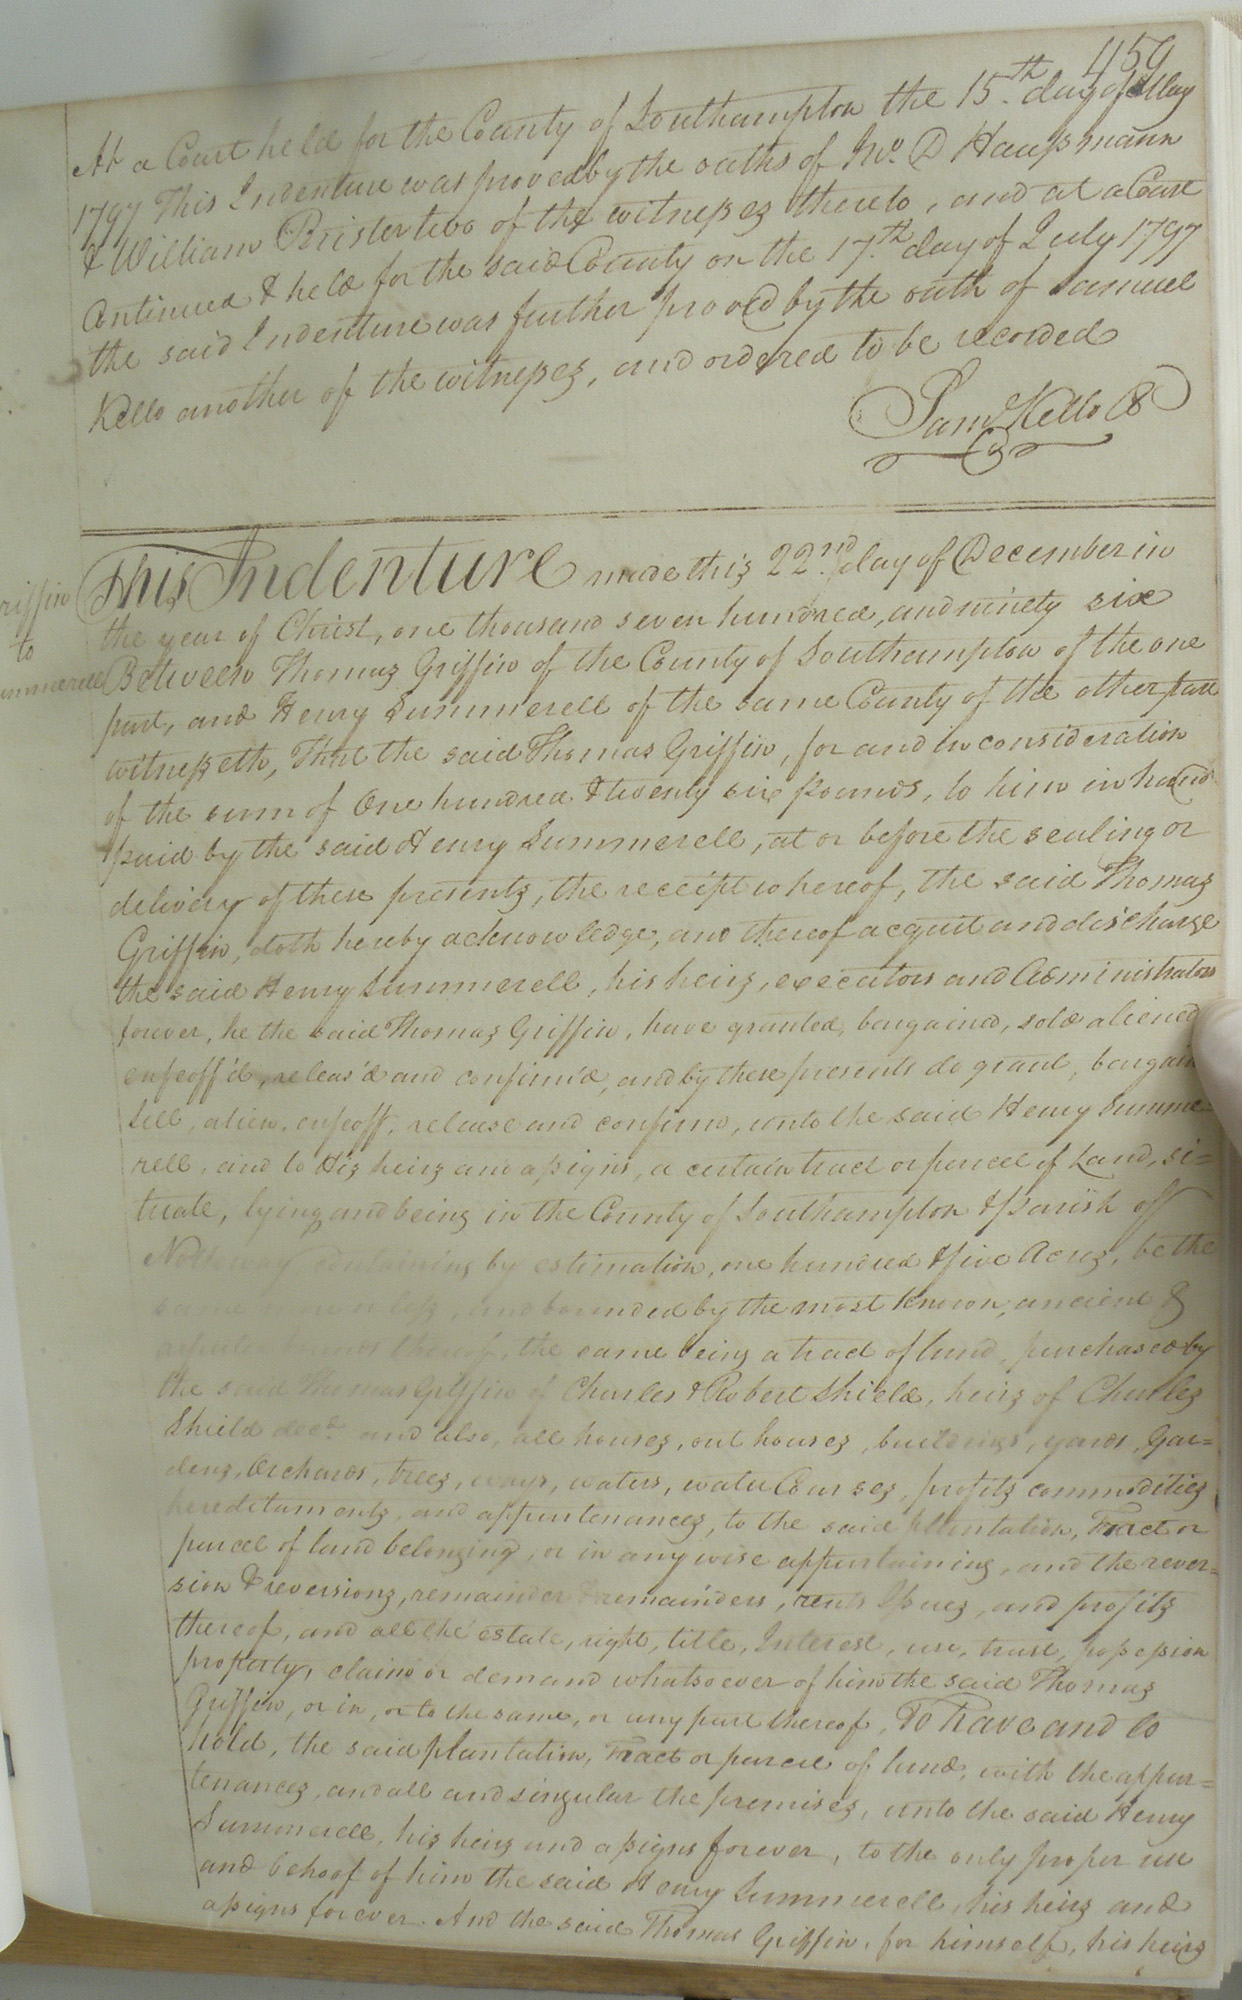 459
At a Court held for the County of Southampton the 15th day of May
1797 This Indenture was proved by the oaths of Jno. D Haussmann
& William Brister two of the witnesses thereto, and at a Court
Continued & held for the said County on the 17th day of July 1797
the said Indenture was further proved by the oath of Samuel
Kello another of the witnesses, and ordered to be recorded
Saml Kello
This Indenture made this 22nd day of December in
the year of Christ, one thousand seven hundred, and ninety six
riffin
to
ummerell
Between Thomas Griffin of the County of Southampton of the one
part, and Henry Summerell of the same County of the other part
witnesseth, That the said Thomas Griffin, for and in consideration
of the sum of One hundred & twenty six pounds, to him in hand
paid by the said Henry Summerell, at or before the sealing or
delivery of these presents, the receipt whereof, the said Thomas
Griffin, doth hereby acknowledge, and thereof acquit and discharge
the said Henry Summerell, his heirs, executors and Administrators
forever, he the said Thomas Griffin, have granted, bargained, sold aliened
enfeoff'd, releas'd and confirm'd, and by these presents do grant, bargain
sell, alien, enfeoff, release and confirm, unto the said Henry Summe-
rell, and to His heirs and assigns, a certain tract or parcel of Land, si=
tuate, lying and being in the County of Southampton & Parish of
Nottoway containing by estimation, one hundred & five Acres, be the
same more or less, and bounded by the most known, ancient &
reputed bounds thereof, the same being a tract of land, purchased by
the said Thomas Griffin of Charles & Robert Shield, heirs of Charles
Shield decd. and also, all houses, out houses, buildings, yards, Gar=
dens, Orchards, trees, ways, waters, water Courses, profits commodities
hereditaments, and appurtenances, to the said plantation, Tract or
parcel of land belonging, or in any wise appertaining, and the rever=
sion & reversions, remainder & remainders, rents Issues, and profits
thereof, and all the estate, right, title, Interest, use, trust, possession
property, claim or demand whatsoever of him the said Thomas
Griffin, or in, or to the same, or any part thereof, To have and to
hold, the said plantation, Tract or parcel of land, with the appur=
tenances, and all and singular the premises, unto the said Henry
Summerell, his heirs and assigns forever, to the only proper use
and behoof of him the said Henry Summerell, his heirs and
assigns forever. And the said Thomas Griffin, for himself, his heirs